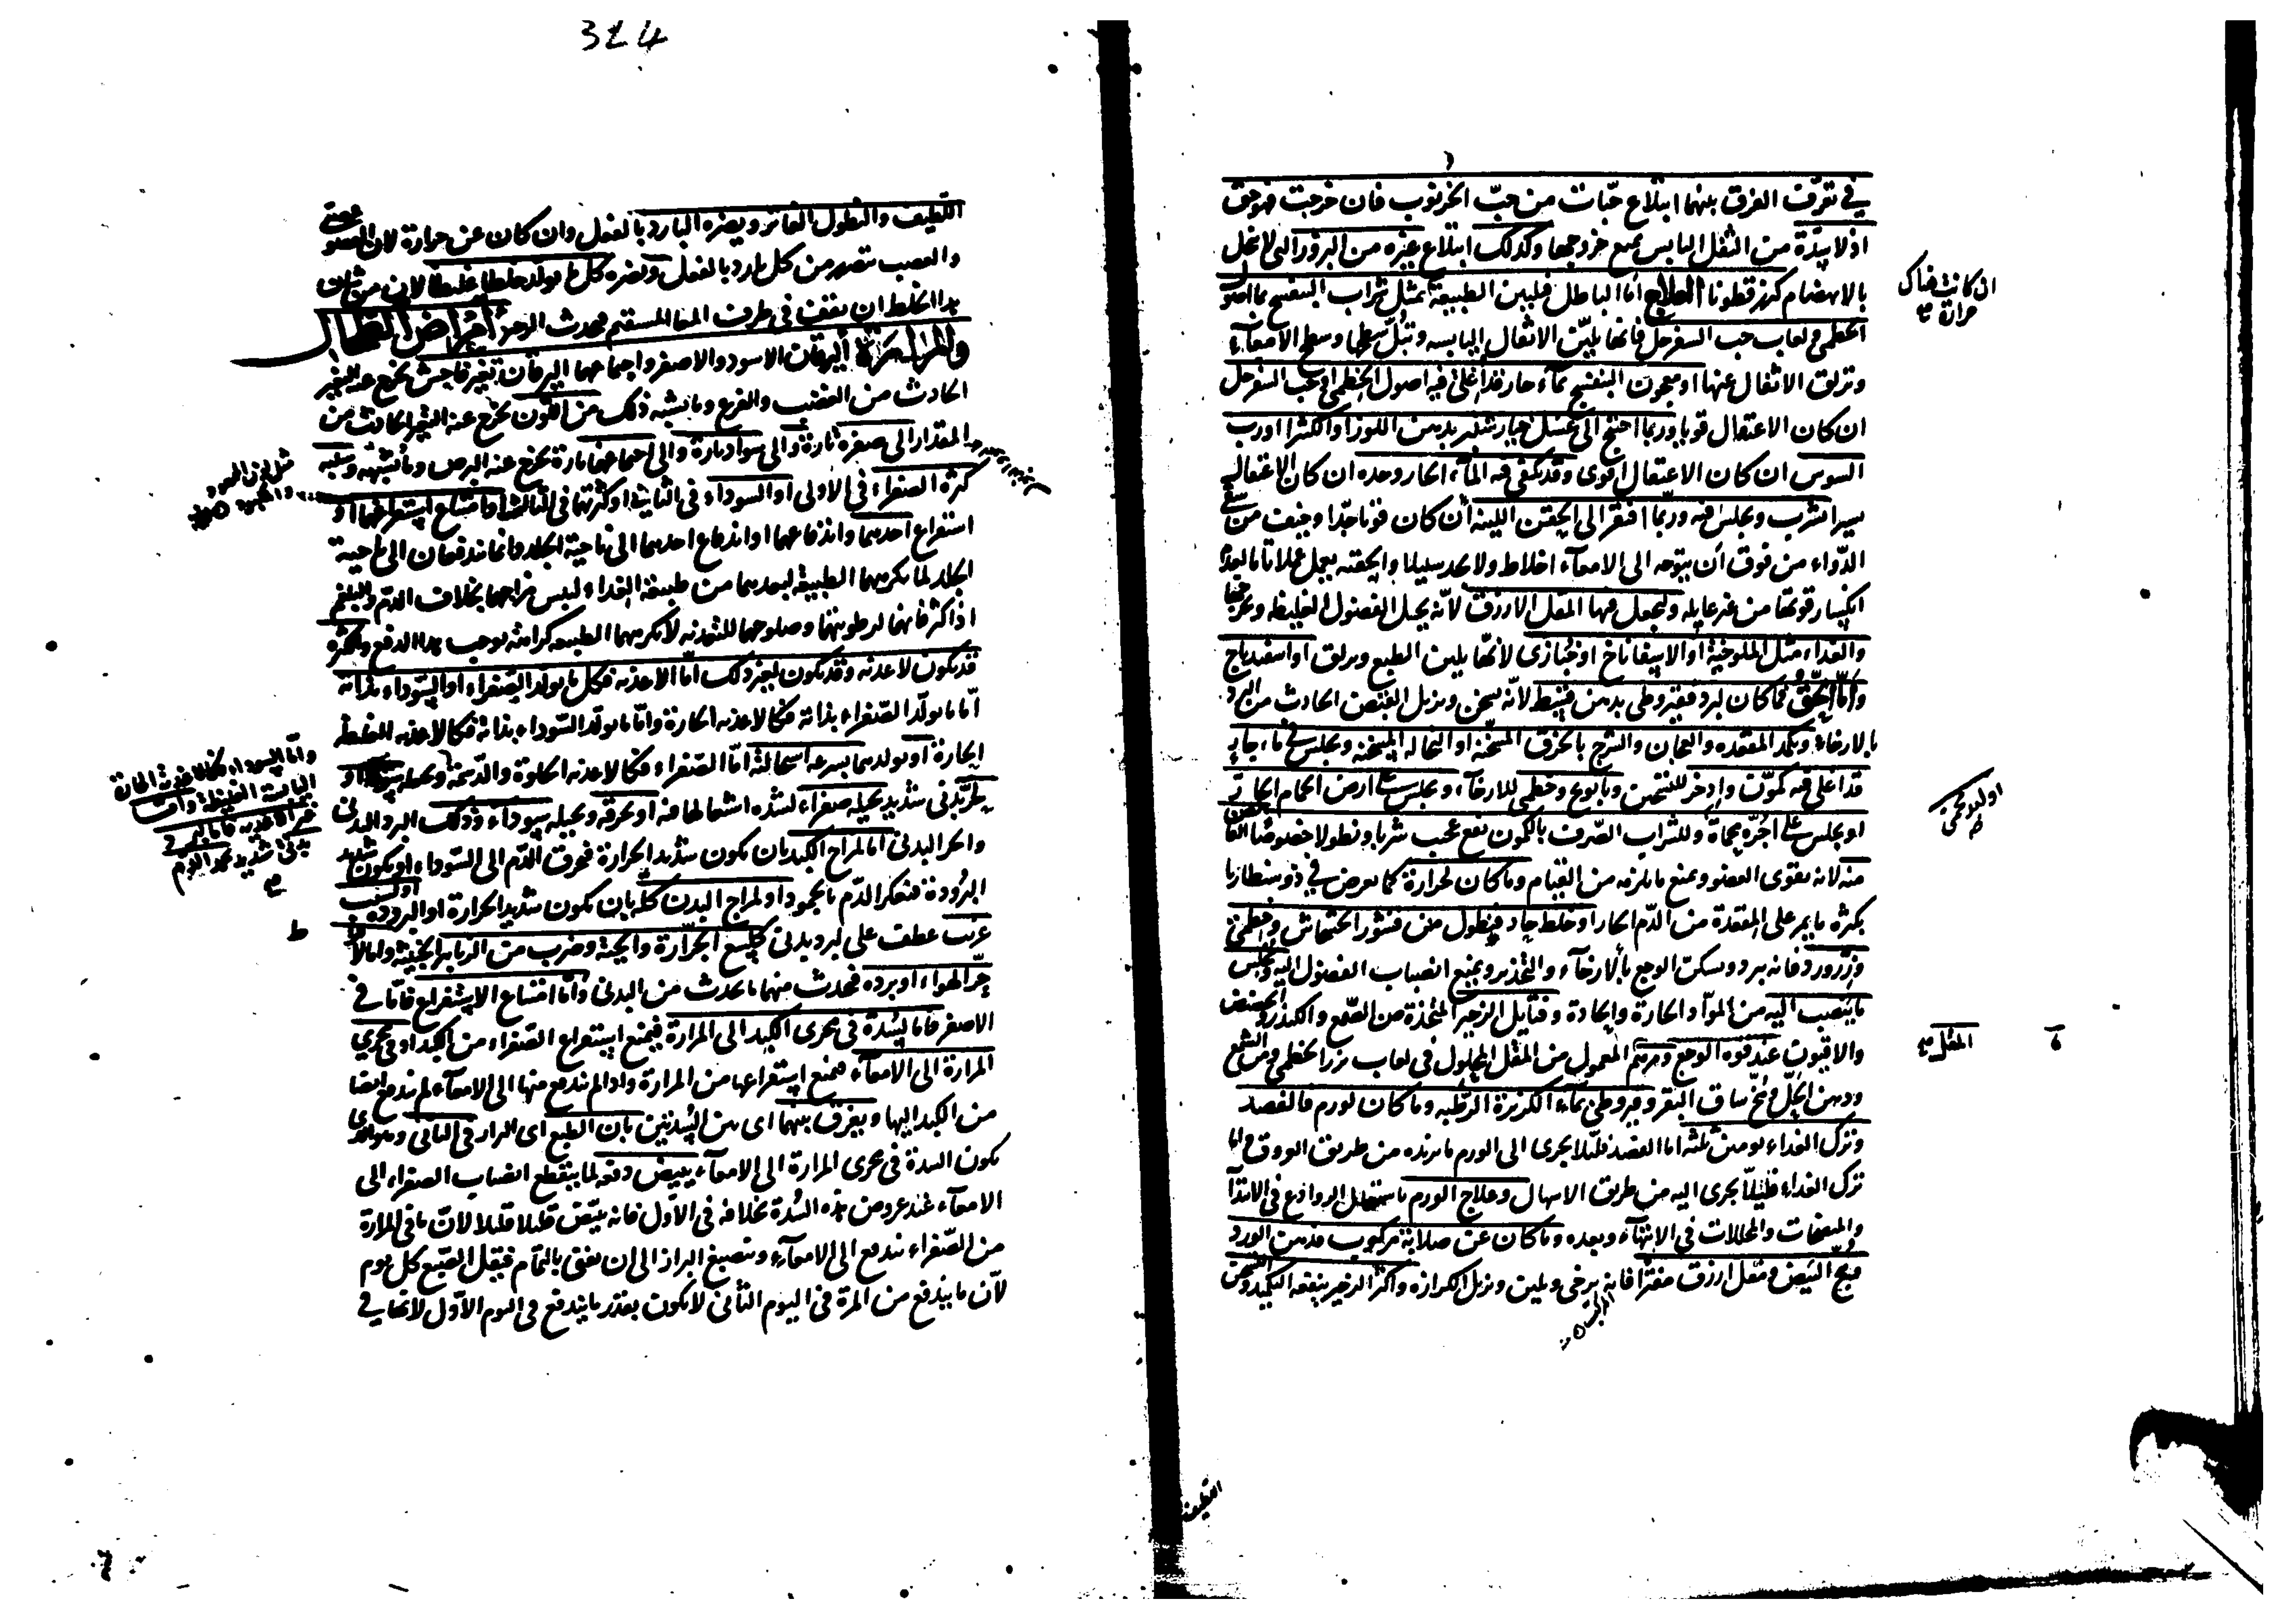 في تعرّف الفرق بينهما ابتلاع حبّات من حبّ الخرنوب فان خرجت فهو حق
اذ لا سدّة من الثفل اليابس يمنع خروجها وكذلك ابتلاع غيره من البزور التي لا تنحل
بالانهضام كبزر قطونا العلاج امّا الباطل فليين الطبيعة بمثل شراب البنفسج بماء اصول
الخطمى ولعاب حب السفرجل فانها يليّن الاثفال اليابسه وتبلّ سطحها وسطح الامعاء
وتزلق الاثفال عنها او معجون البنفسج بماء حار قد اغلى فيه اصول الخطمى او حب السفرجل
ان كان الاعتقال قويا وربما احتج الى عسل خيار شنبر بدهن اللوز او الكثيرا او رب
السوس ان كان الاعتقال اقوى وقد يكفى فيه الماء الحار وحده ان كان الاعتقال
يسيرا يشرب ويجلس فيه وربّما افتقر الى الحقن اللينه ان كان قويا جدّا وخيفت من سقى
الدّواء من فوق ان يتوجه الى الامعاء اخلاط ولا يجد سبيلا والحقنه يعمل عملا تاما بعد
انكسار قوتها من غير غايله وليجعل فيها المقل الارزق لانّه يحلل الفضول الغليظه ويخرجها
والغذاء مثل الملوخية او الاسفاناخ او خبازى لانّها يلين الطبع ويزلق او اسفيدباج
وامّا الحق فما كان لبرد فقيروطى بدهن قسط لانّه يسخن ويزيل القبض الحادث من البرد
بالارخاء وتكمد المقعده والعجان والشرج بالخرق المسخنه او النخاله المسخنه ويجلس في ماء حار
قد اغلى فيه كمّون واذخر للتسخين وبابونج وخطمى للارخاء ويجلس على ارض الحمام الحارّة
او يجلس على اجُرّه محماة وللشراب الصّرف بالكمون نفع عجيب شربا ونطولا خصوصا القابض
منه لانه يقوى العضو ويمنع ما يلزمه من القيام وما كان لحرارة كما يعرض في ذوسنطاريا
بكثره ما يمر على المقعدة من الدّم الحار او خلط حاد فينطول من قشور الخشخاش وخطمى
وزرورد فانه يبرد ويسكن الوجع بالارخاء والتخدير ويمنع انصباب الفضول اليه ويحبس
ما ينصب اليه من الموادّ الحارة والحادة وفتايل الزحير المتخذة من الصّمغ والكندر والحضض
والافيون عند قوه الوجع ومرهم المعمول من المقل المحلول في لعاب بزر الخطمى ومن الشمع
ودهن الحلّ ومخّ ساق البقر وقيروطى بماء الكزبرة الرطبه وما كان لورم فالفصد
وترك الغداء يومين ثلثه اما الفصد فلئلا يجرى الى الورم ما يزيده من طريق العروق واما
ترك الغداء فلئلا يجرى اليه من طريق الاسهال وعلاج الورم باستعمال الروادع في الابتدا
والمنضجات والمحللات في الانتهاء وبعده وما كان عن صلابة مركوب فدهن الورد
ومح البيض ومقل ارزق مفترا فانه يرخى ويلين ويزيل الكزازه واكثر الزحير ينفعه التكميد والتسخين
ان كانت هناك
حرارة صح
المقل صح
اللطيف
324
اللطيف والنطول الفاتر ويضره البارد بالفعل وان كان عن حرارة لان العضو عصبى
والعصب يتضرر من كل بارد بالفعل ويضره كل ما يولد خلطا غليظا لان من شان
هذا الخلط ان يقف في طرف المعا المستقيم فيحدث الزحير امراض الطحال
والمرارة اليرقان الاسود والاصفر واجتماعهما اليرقان تغير فاحش يخرج عنه التغير
الحادث من الغضب والفزع وما يشبه ذلك من اللون يخرج عنه التغير الحادث من
المقدار الى صفره تارة والى سواد تارة والى اجتماعهما تارة يخرج عنه البرص وما يشبهه وسببه
كثرة الصفراء في الاولى او السوداء في الثانية او كثرتهما في الثالث او امتناع استفراغهما او
استفراغ احديهما واندفاعهما او اندفاع احديهما الى ناحية الجلد وانما تندفعان الى ناحية
الجلد لما يكرههما الطبيعة لبعدهما من طبيعة الغداء ليبس مزاجهما بخلاف الدّم والبلغم
اذا كثر فانهما لرطوبتهما وصلوحهما للتغذيه لا يكرههما الطبيعه كراهة يوجب هذا الدفع والكثره
قد يكون لاغذيه وقد يكون لغير ذلك امّا الاغذيه فكل ما يولد الصفراء او السّوداء بذاته
امّا ما يولّد الصّفراء بذاته فكالاغذيه الحارة وامّا ما يولّد السّوداء بذاته فكالاغذيه الغليظه
الحارة او يولدهما بسرعه استحالته امّا الصّفراء فكالاغذيه الحلوة والدّسمة
شديد يحيله صفراء لشده اشعالها فيه او يحرقه ويحيله سوداء وذلك البرد البدنى
والحر البدنى امّا لمزاج الكبد بان يكون شديد الحرارة فيحرق الدّم الى السّوداء او يكون شديد
البرودة فيعكر الدّم بالجمود او لمزاج البدن كلّه بان يكون شديد الحرارة او البروده او لسبب
غريب عطف على لبرد بدنى كلسع الجرّارة والحية وضرب من الزنابير الخبيثه واما
حرّ الهواء او برده فيحدث منهما ما يحدث من البدنى وامّا امتناع الاستفراغ فامّا في
الاصفر فاما لسدة في مجرى الكبد الى المرارة فيمنع استفراغ الصّفراء من الكبد او في مجرى
المرارة الى الامعاء فيمنع استفراغها من المرارة واذا لم تندفع منها الى الامعاء لم تندفع ايضا
من الكبد اليها ويفرق بينهما اى بين السّدتين بان الطبع اى البراز في الثانى وهو الذى
يكون السدة في مجرى المرارة الى الامعاء يبيض دفعه لما ينقطع انصباب الصفراء الى
الامعاء عند عروض هذه السُدة بخلافه في الاوّل فانه يبيّض قليلا قليلا لانّ ما في المرارة
من الصّفراء تندفع الى الامعاء وتصبغ البراز الى ان يفنى بالتمام فيقل الصّبغ كل يوم
لانّ ما يندفع من المرة في اليوم الثانى لا يكون بقدر ما يندفع في اليوم الاوّل لانها في